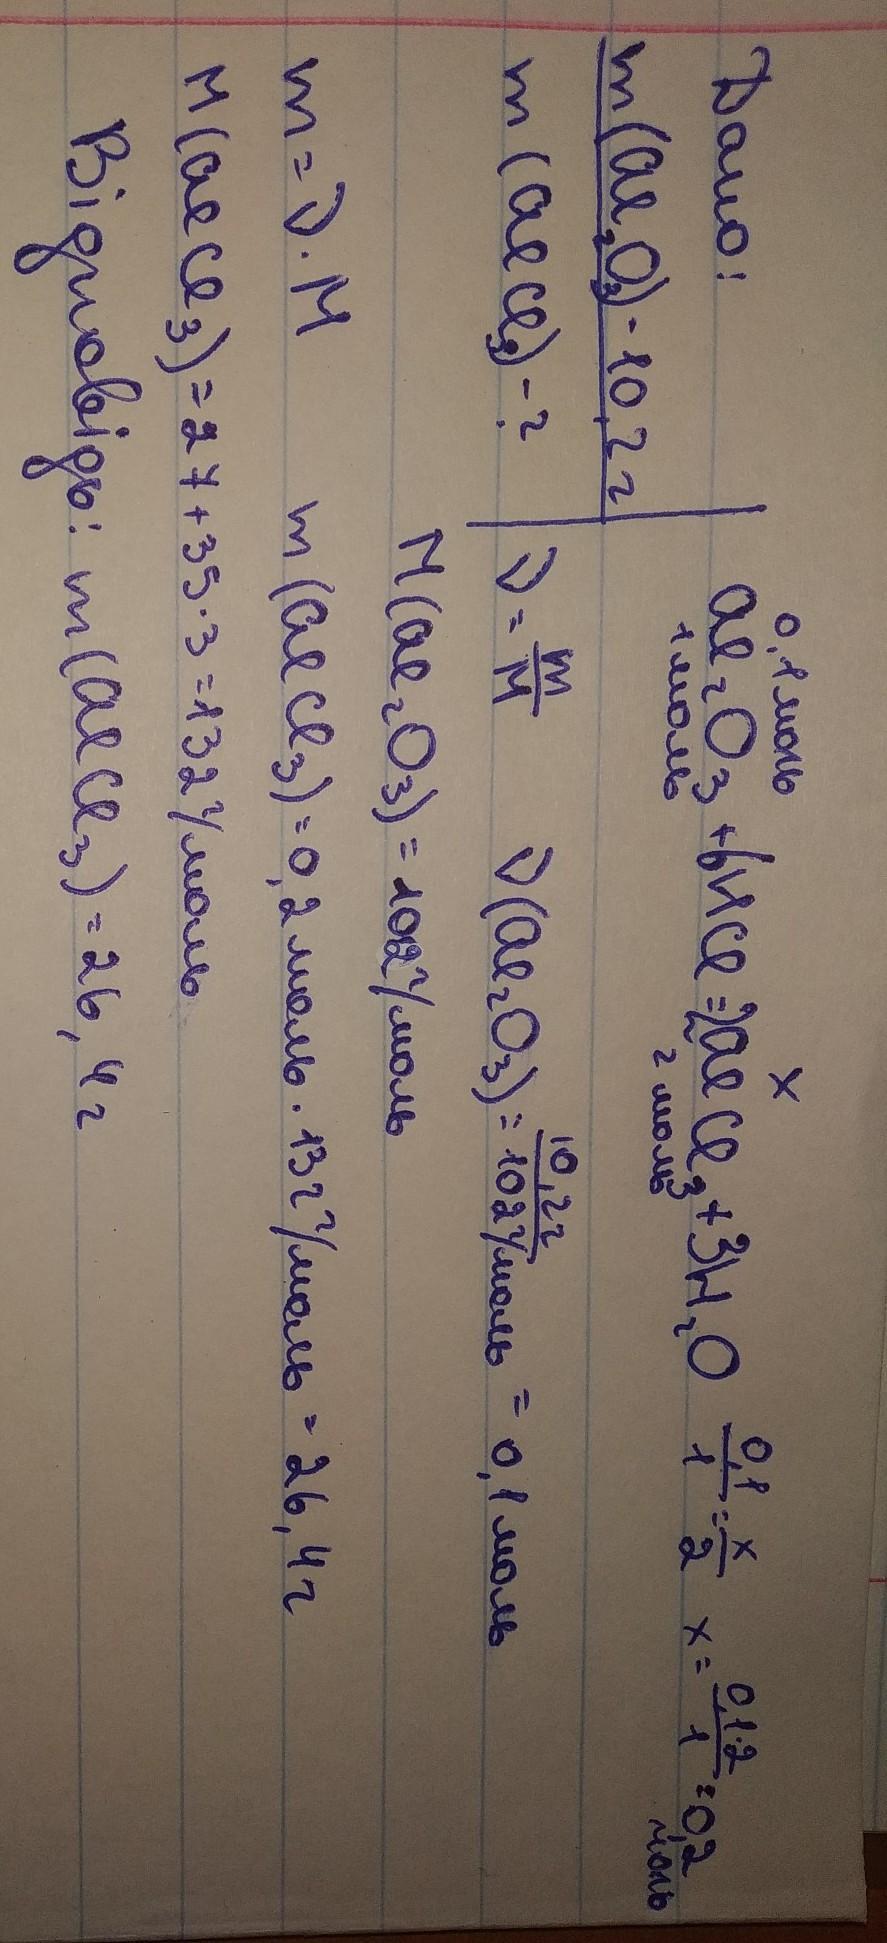 Дано:
m(Al₂O₃)-10,2г
m(AlCl₃)-?
0,1моль x
Al₂O₃+6HCl=2AlCl₃+3H₂O 0,1/1=x/2 x=0,1·2/1=0,2 моль
1моль 2 моль
ν=m/M ν(Al₂O₃)=10,2г/102г/моль=0,1моль
M(Al₂O₃)=102г/моль
m=ν·M m(AlCl₃)=0,2моль·132г/моль=26,4г
M(AlCl₃)=27+35·3=132г/моль
Відповідь: m(AlCl₃)=26,4г